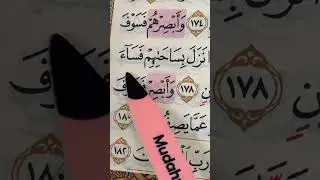 ١٧٤ وَأَبْصِرْهُمْ فَسَوْفَ
نَزَلَ بِسَاحَتِهِمْ فَسَآءَ
١٧٨ وَأَبْصِرْ ١٧٨
عَمَّا يَصِفُ ١٨٠
رَبِّ ١٨٢
Mudah